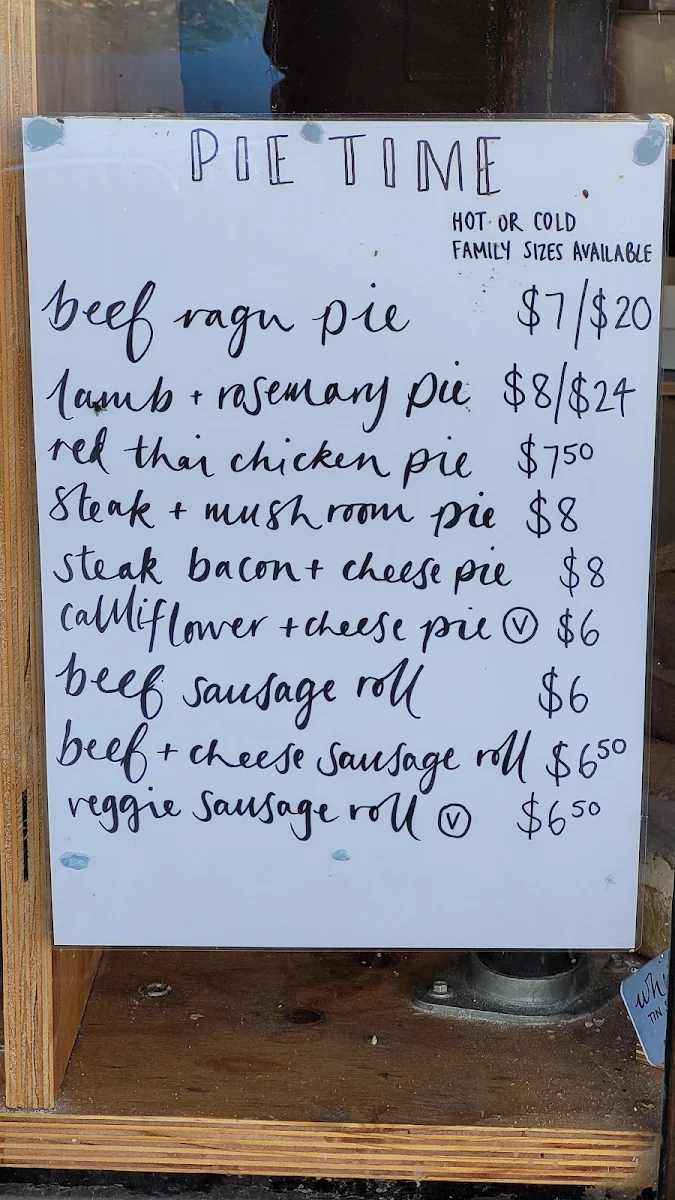 PIE TIME
HOT OR COLD
FAMILY SIZES AVAILABLE
beef ragu pie $7/$20
lamb + rosemary pie $8/$24
red thai chicken pie $750
steak + mushroom pie $8
steak bacon + cheese pie $8
cauliflower + cheese pie V $6
beef sausage roll $6
beef + cheese sausage roll $650
veggie sausage roll V $650